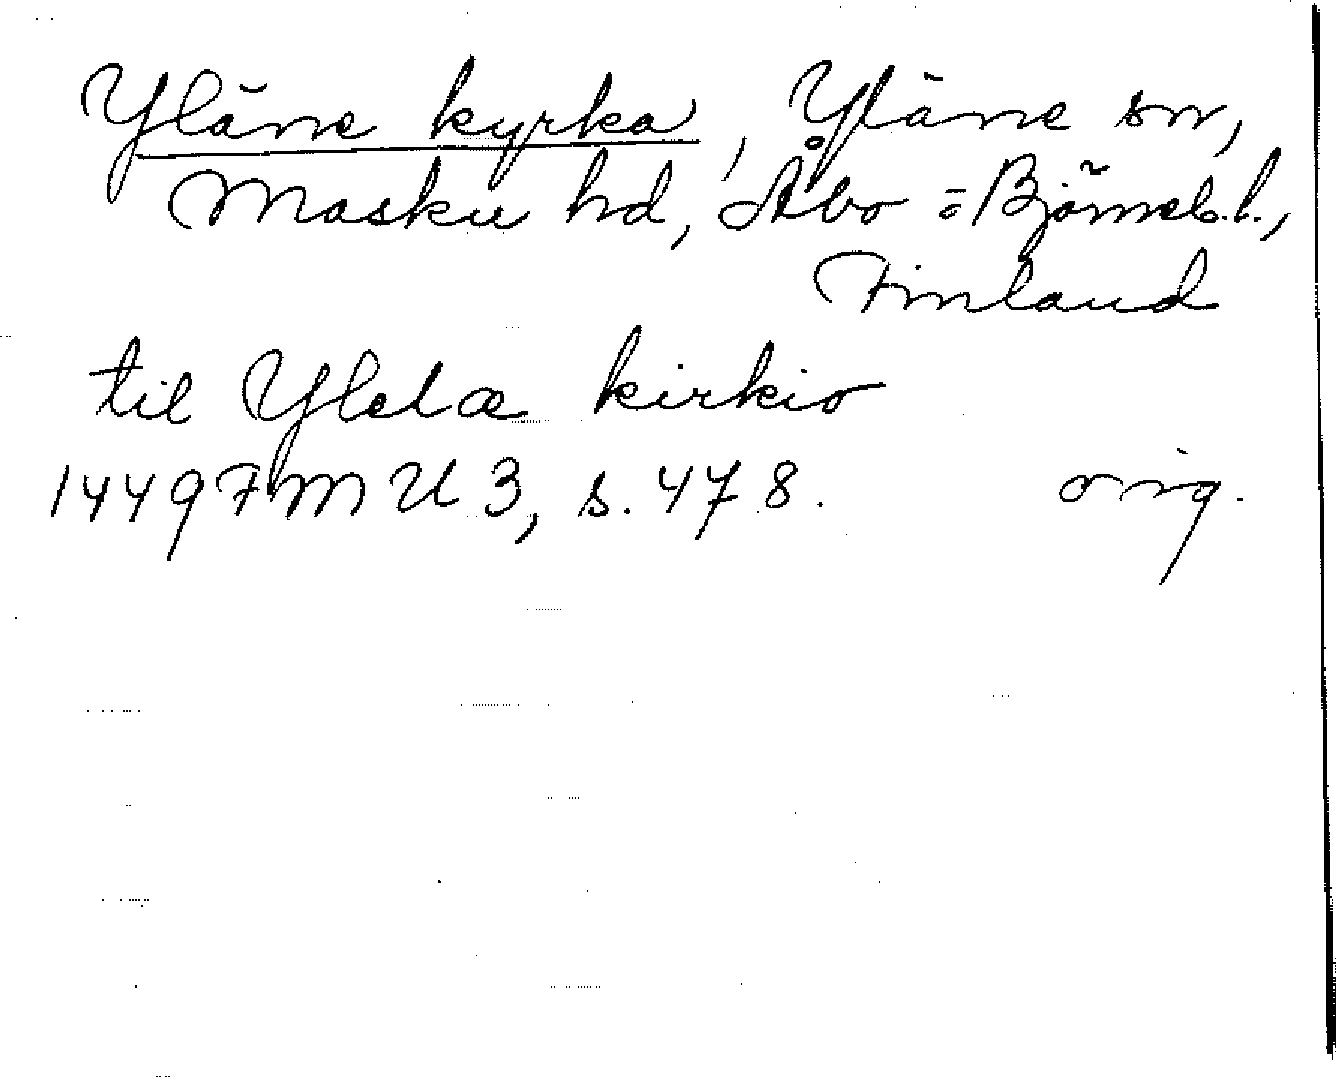 Yläne kyrka, Yläne sn,
Masku hd, Åbo = Björneb. l.,
Finland
til Yletæ kirkio
1449 FMU 3, s. 478. orig.